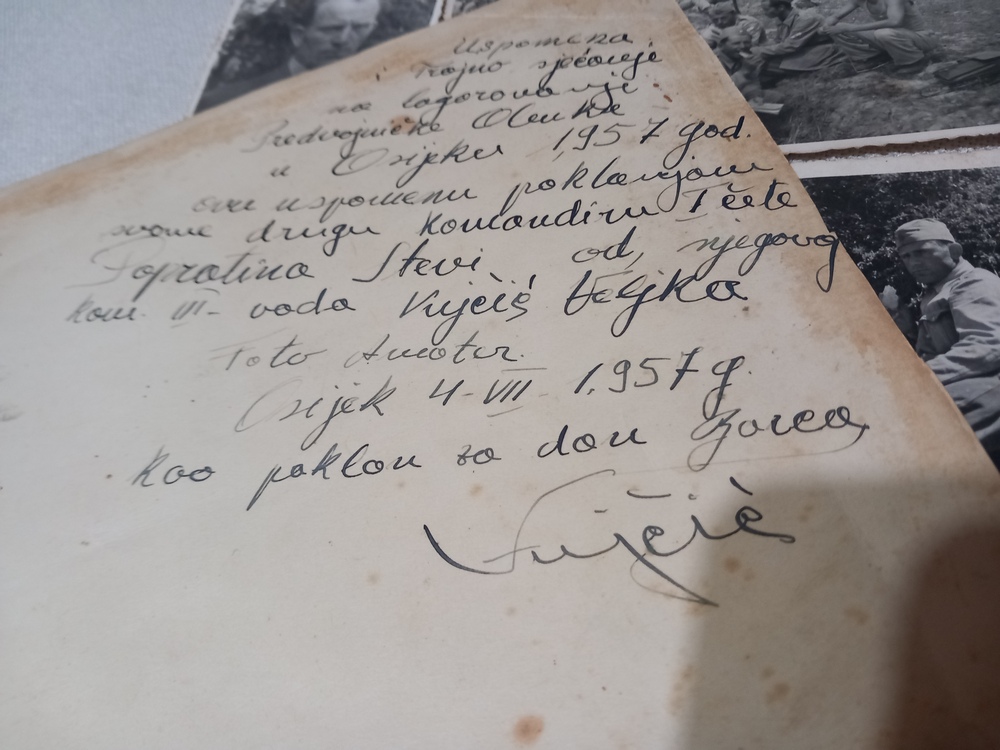 Uspomena
i Trajno sjećanje
na logorovanje
Predvojničke Obuke
u Osijeku 1957 god.
ovu uspomenu poklanjam
svome drugu Komandiru Čete
Popratina Stevi od, njegovog
kom. III- voda Vujčić Veljka
Foto Amater.
Osijek 4-VII- 1957 g.
Kao poklon za dan Borca,
Vujčić